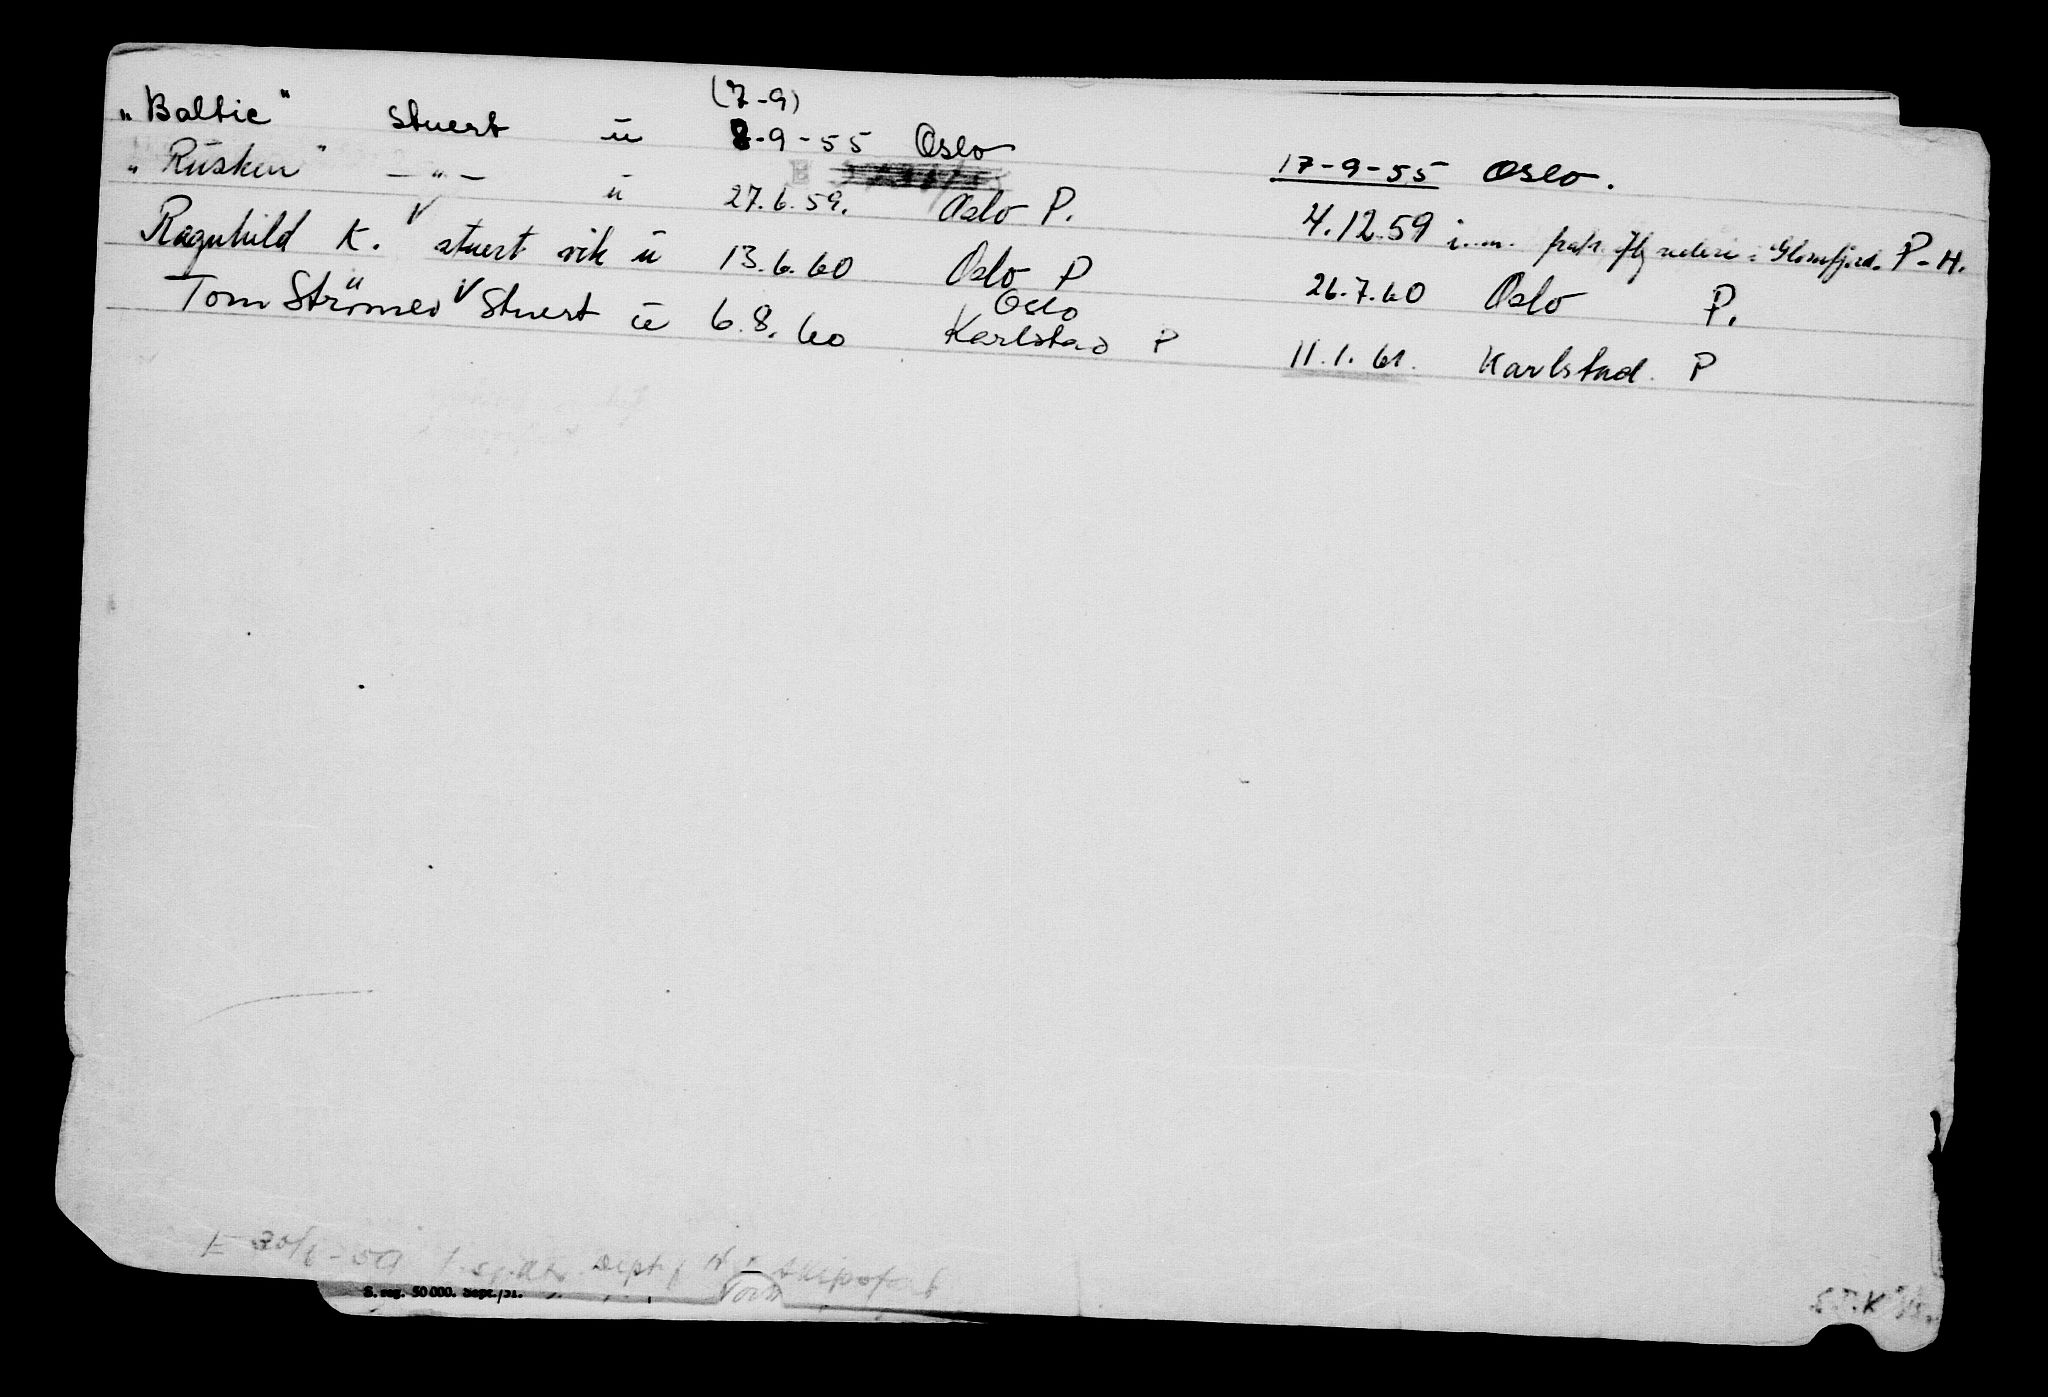 (7-9)
„Baltic" stuert u 8-9-55 Oslo 17-9-55 Oslo.
„Rusken" -"- u 27.6.59. Oslo P. 4.12.59 rederi Glomfjord. P-H.
Ragnhild K. stuert vik u 13.6.60 Oslo P 26.7.60 Oslo P.
Oslo
Tom Strømer Stuert u 6.8.60 Karlstad P 11.1.61. Karlstad. P
S. reg. 50000. Sept./51.